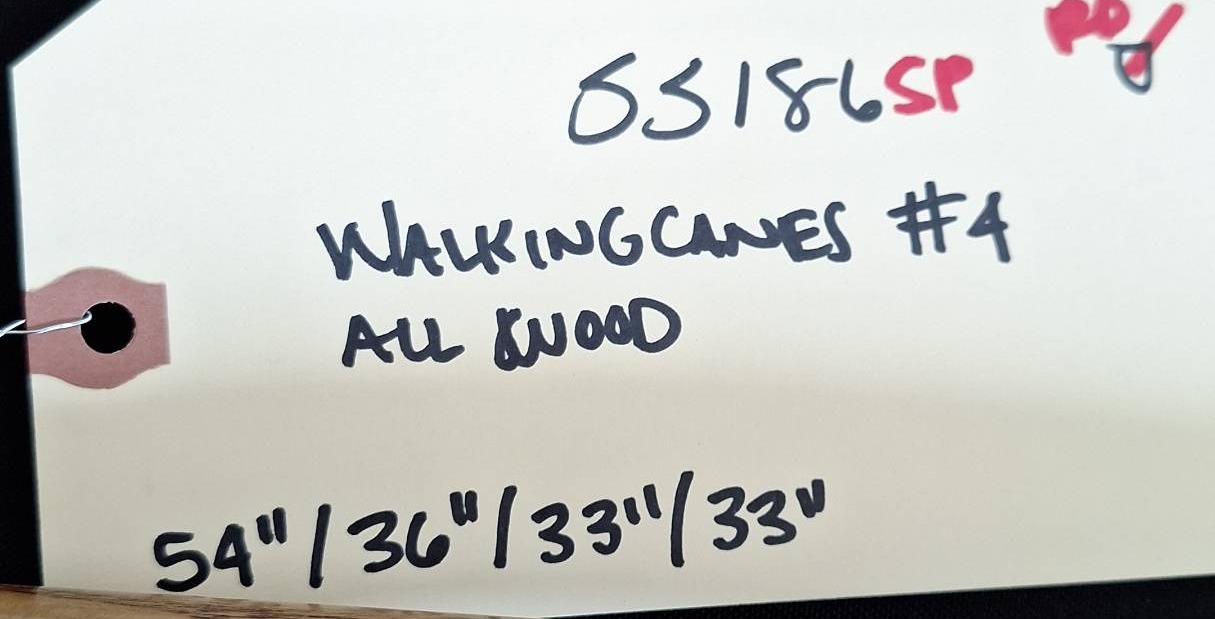 PD
55186SP
WALKING CANES #4
ALL WOOD
54"/36"/33"/33"